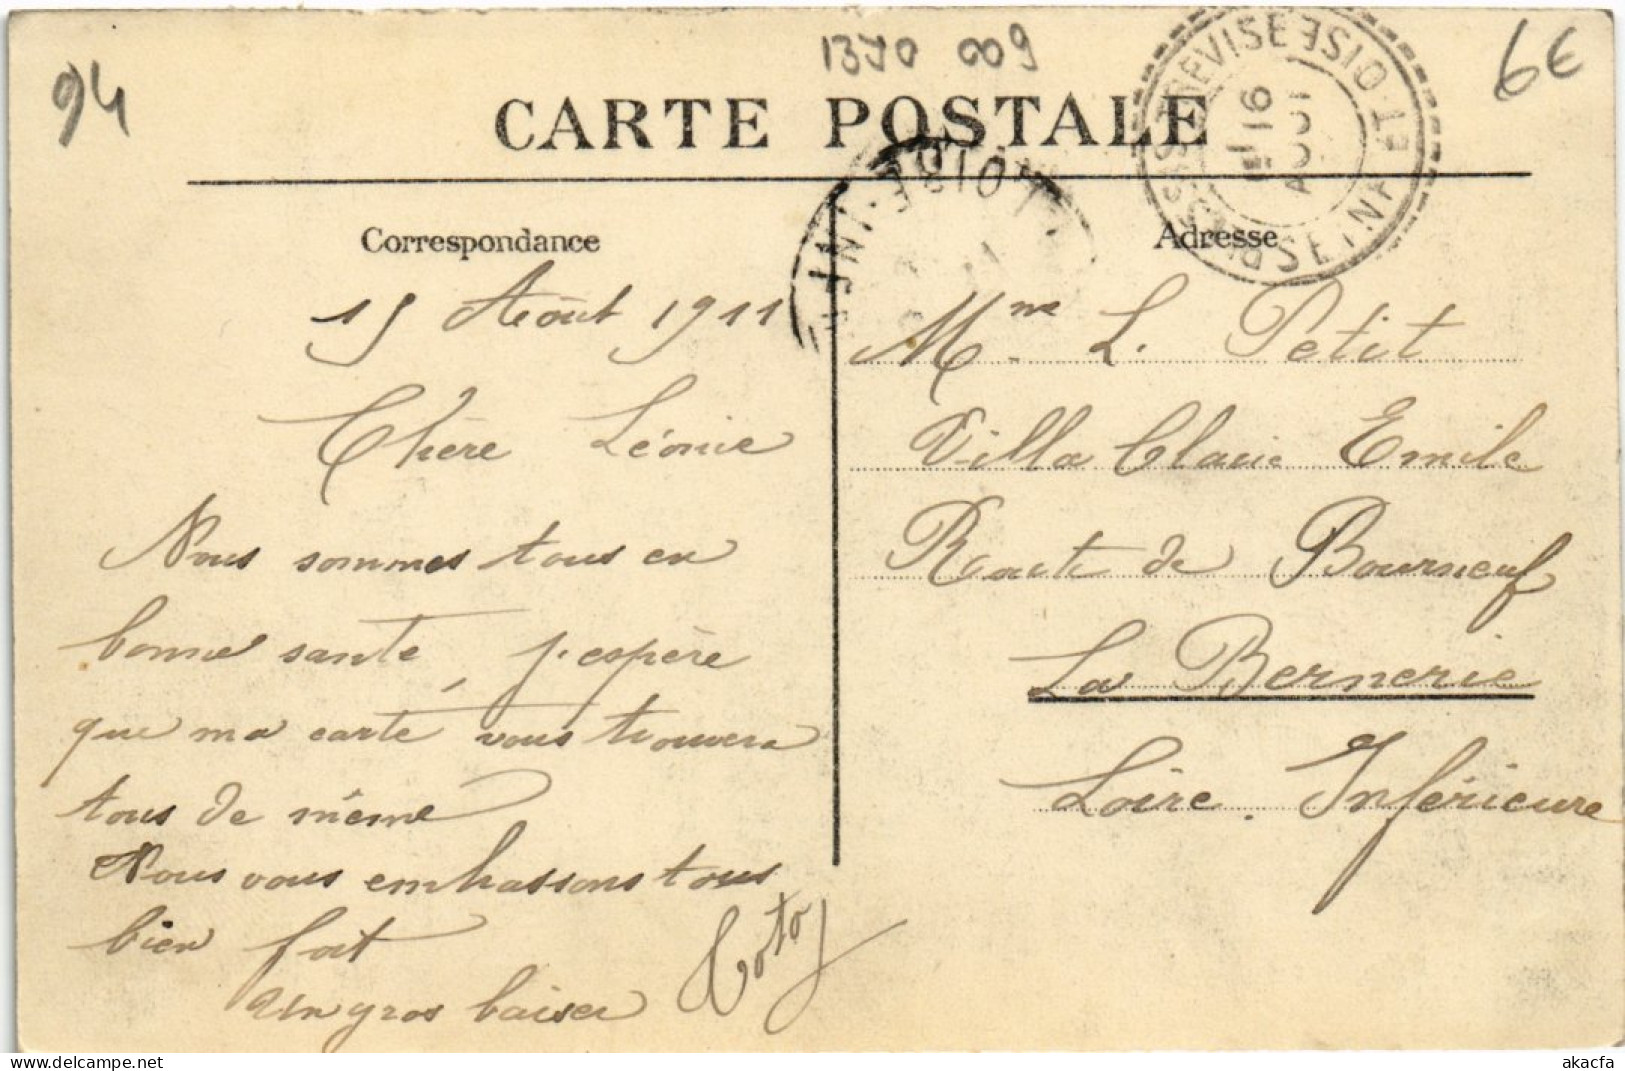 94
1370 009
6€
CARTE POSTALE
Correspondance
Adresse
SEINE ET OISE
16
AOUT
15 Août 1911
Chère Léonie
Nous sommes tous en
bonne santé, j'espère
que ma carte vous trouvera
tous de même
Nous vous embrassons tous
bien fort
Un gros baiser
Toto
Mme L. Petit
Villa Claire Emile
Route de Bourneuf
La Bernerie
Loire. Inférieure
akacfa